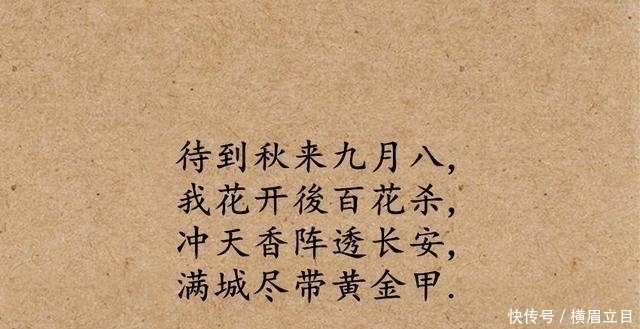 待到秋来九月八,
我花开後百花杀,
冲天香阵透长安,
满城尽带黄金甲.
快传号/横眉立目